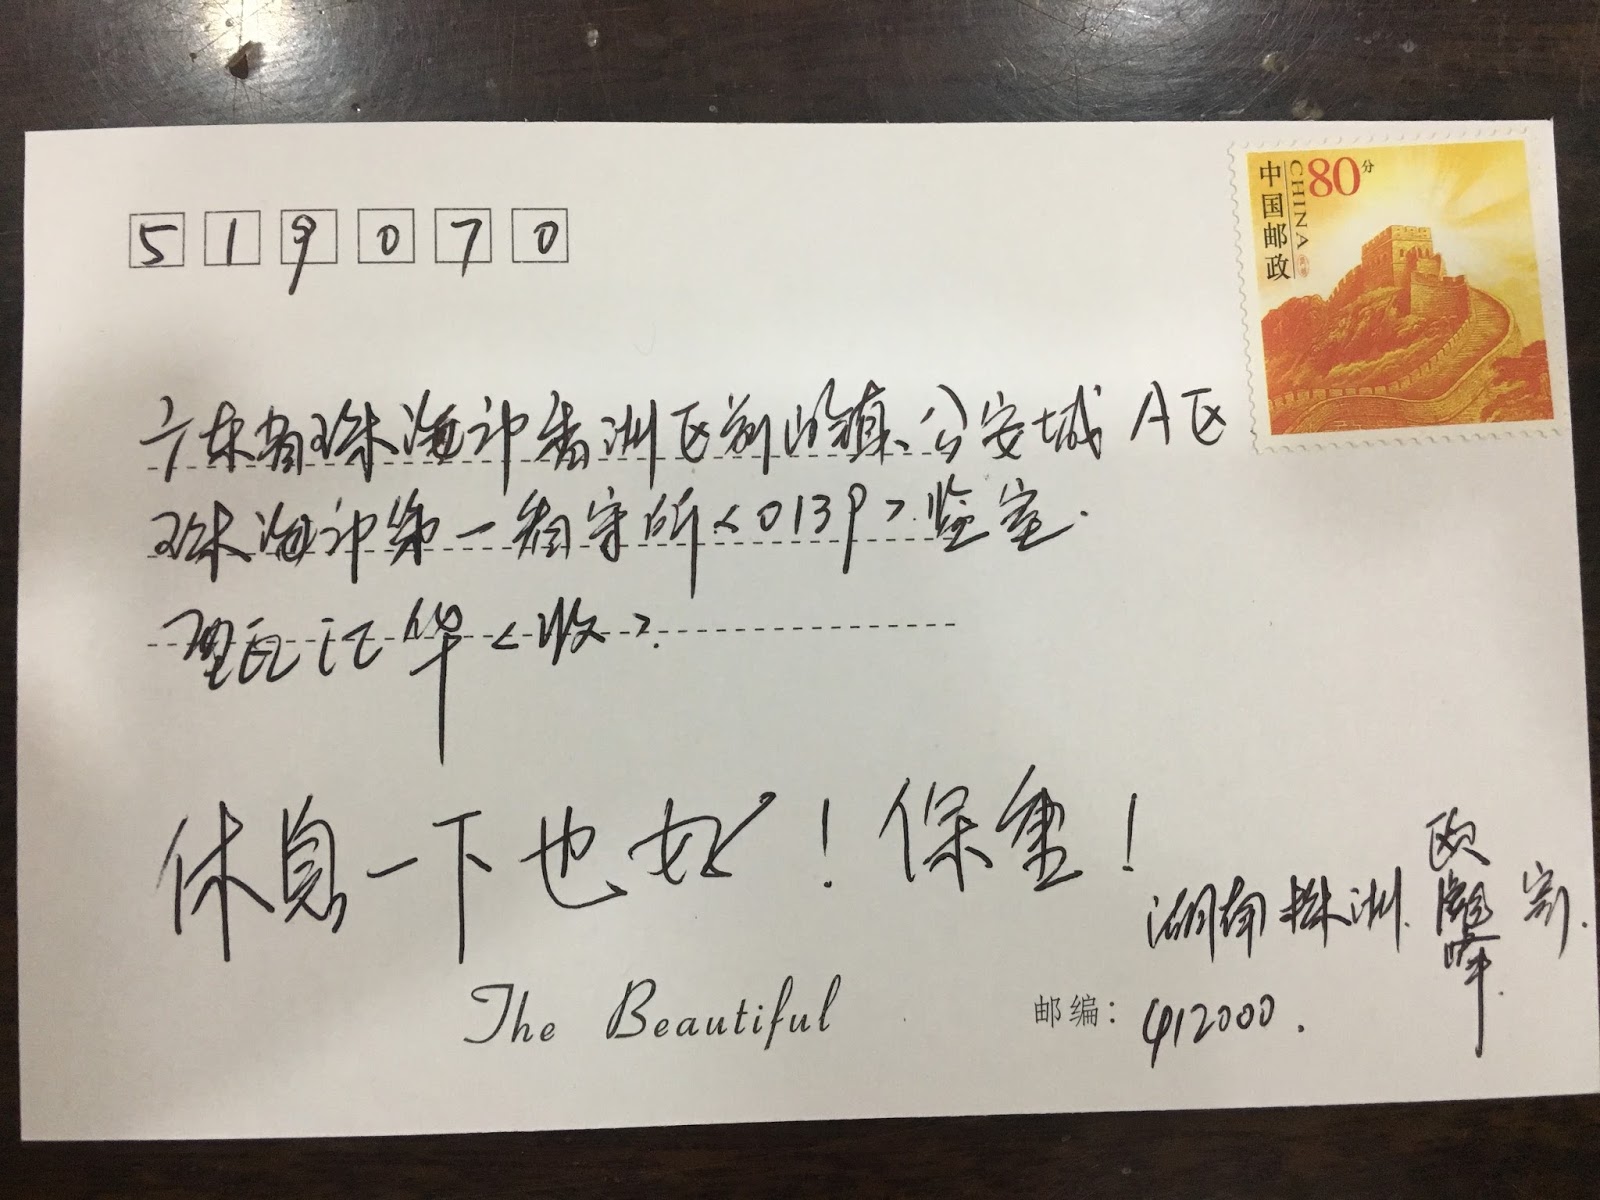 中国邮政
CHINA
80分
519070
广东省珠海市香洲区前山镇公安城A区
珠海市第一看守所<0139>监室.
甄江华<收>.
休息一下也好！保重！
湖南株洲.欧彪峰寄.
The Beautiful
邮编：412000.